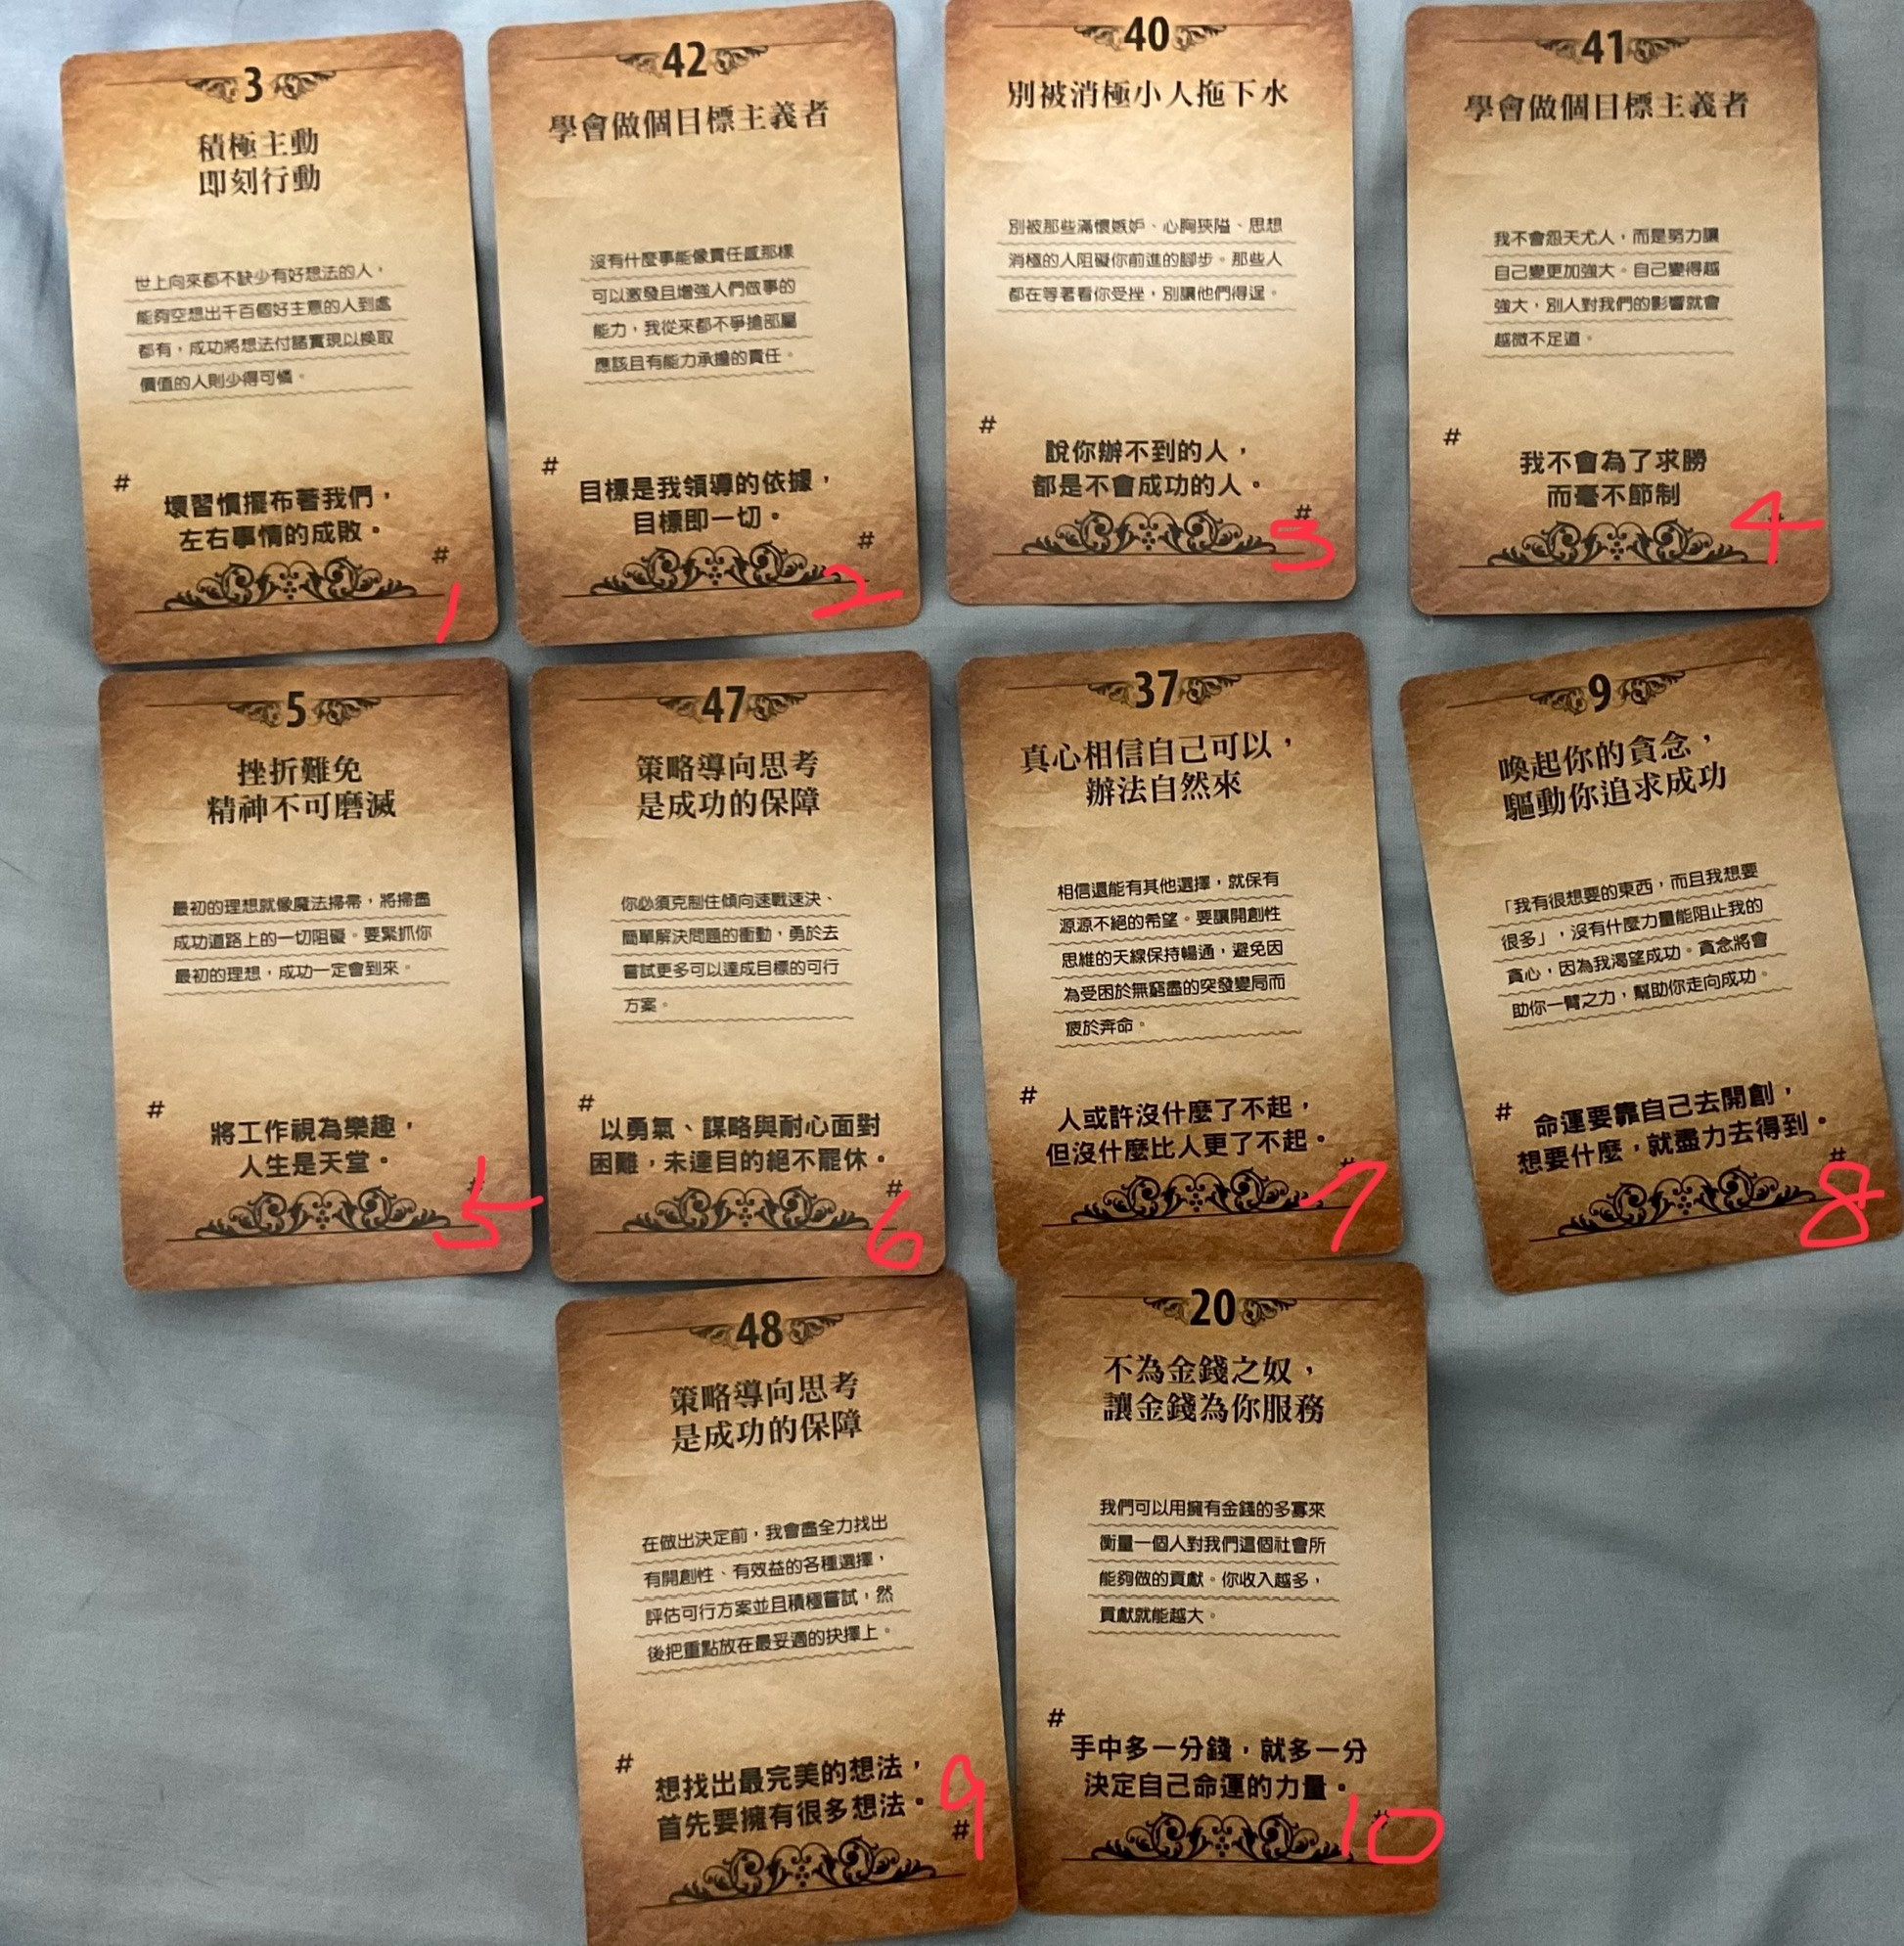 3
積極主動
即刻行動
世上向來都不缺少有好想法的人，
能夠空想出千百個好主意的人到處
都有，成功將想法付諸實現以換取
價值的人則少得可憐。
#
壞習慣擺布著我們，
左右事情的成敗。
#
1
42
學會做個目標主義者
沒有什麼事能像責任感那樣
可以激發且增強人們做事的
能力，我從來都不爭搶部屬
應該且有能力承擔的責任。
#
目標是我領導的依據，
目標即一切。
#
2
40
別被消極小人拖下水
別被那些滿懷嫉妒、心胸狹隘、思想
消極的人阻礙你前進的腳步。那些人
都在等著看你受挫，別讓他們得逞。
#
說你辦不到的人，
都是不會成功的人。
#
3
41
學會做個目標主義者
我不會怨天尤人，而是努力讓
自己變更加強大。自己變得越
強大，別人對我們的影響就會
越微不足道。
#
我不會為了求勝
而毫不節制
#
4
5
挫折難免
精神不可磨滅
最初的理想就像魔法掃帚，將掃盡
成功道路上的一切阻礙。要緊抓你
最初的理想，成功一定會到來。
#
將工作視為樂趣，
人生是天堂。
#
5
47
策略導向思考
是成功的保障
你必須克制住傾向速戰速決、
簡單解決問題的衝動，勇於去
嘗試更多可以達成目標的可行
方案。
#
以勇氣、謀略與耐心面對
困難，未達目的絕不罷休。
#
6
37
真心相信自己可以，
辦法自然來
相信還能有其他選擇，就保有
源源不絕的希望。要讓開創性
思維的天線保持暢通，避免因
為受困於無窮盡的突發變局而
疲於奔命。
#
人或許沒什麼了不起，
但沒什麼比人更了不起。
#
7
9
喚起你的貪念，
驅動你追求成功
「我有很想要的東西，而且我想要
很多」，沒有什麼力量能阻止我的
貪心，因為我渴望成功。貪念將會
助你一臂之力，幫助你走向成功。
#
命運要靠自己去開創，
想要什麼，就盡力去得到。
#
8
48
策略導向思考
是成功的保障
在做出決定前，我會盡全力找出
有開創性、有效益的各種選擇，
評估可行方案並且積極嘗試，然
後把重點放在最妥適的抉擇上。
#
想找出最完美的想法，
首先要擁有很多想法。
#
9
20
不為金錢之奴，
讓金錢為你服務
我們可以用擁有金錢的多寡來
衡量一個人對我們這個社會所
能夠做的貢獻。你收入越多，
貢獻就能越大。
#
手中多一分錢，就多一分
決定自己命運的力量。
#
10